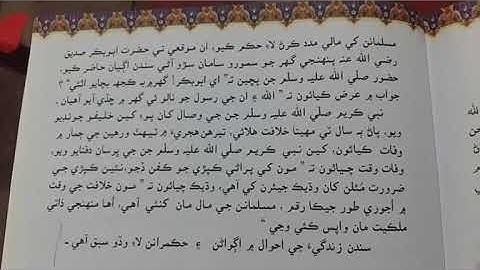 مسلمانن کي مالي مدد ڪرڻ لاءِ حڪم ڪيو، ان موقعي تي حضرت ابوبڪر صديق
رضي الله عنه پنهنجي گهر جو سمورو سامان سڙو آڻي سندن اڳيان حاضر ڪيو،
حضور صلي الله عليه وسلم جن پڇين ته” اي ابوبڪر! گهر ۾ به ڪجهه بچايو اٿئي“ ؟
جواب ۾ عرض ڪيائون ته ” الله ۽ ان جي رسول جو نالو ئي گهر ۾ ڇڏي آيو آهيان.
نبي ڪريم صلي الله عليه وسلم جن جي وصال کان پوءِ کين خليفو چونڊيو
ويو، پاڻ به سال ٽي مهينا خلافت هلائي، تيرهن هجريءَ ۾ ٽيهٺ ورهين جي ڄمار ۾
وفات ڪيائون، کين نبي ڪريم صلي الله عليه وسلم جن جي پرسان دفنايو ويو،
وفات وقت چيائون ته ” مون کي پراڻي ڪپڙي جو ڪفن ڏجو، نئين ڪپڙي جي
ضرورت مئلن کان وڌيڪ جيئرن کي آهي، وڌيڪ چيائون ته ” مون خلافت جي وقت
۾ اجوري طور جيڪا رقم ، مسلمانن جي مال مان کنئي آهي، اها منهنجي ذاتي
ملڪيت مان واپس ڪئي وڃي“
سندن زندگيءَ جي احوال ۾ اڳواڻن ۽ حڪمرانن لاءِ وڏو سبق آهي ـ